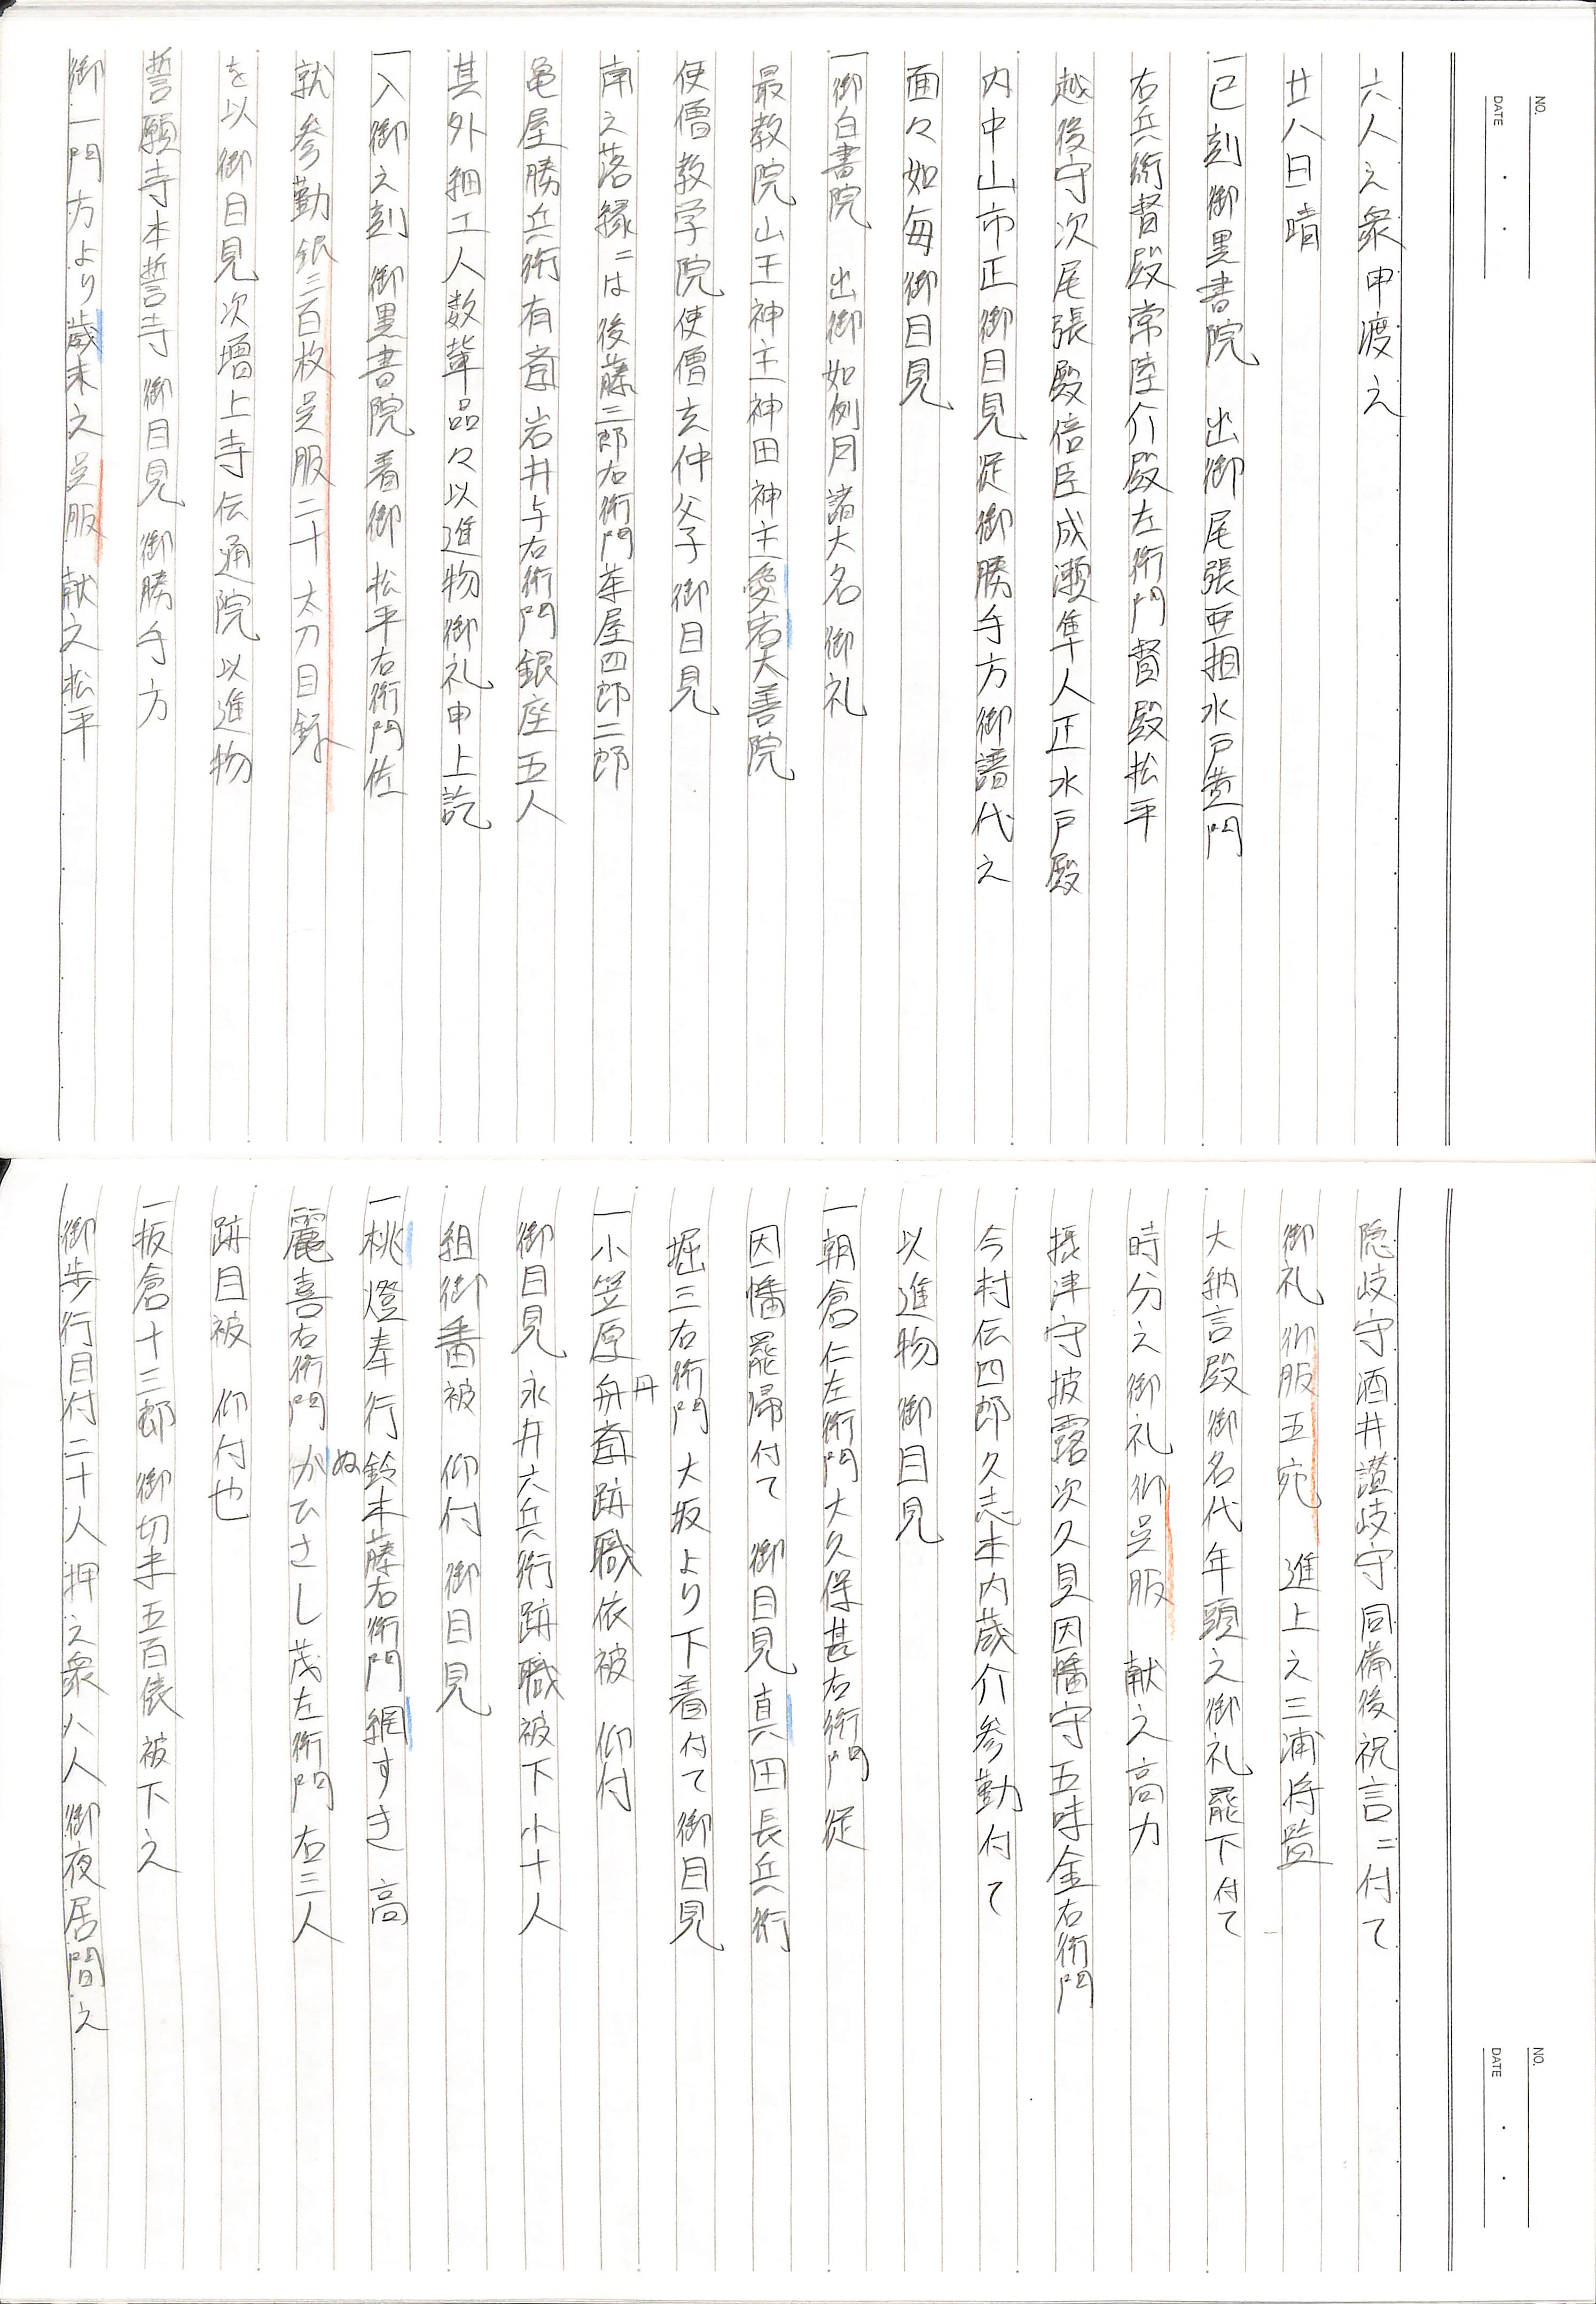 NO.
DATE
六人之衆申渡之
廿八日晴
一巳刻御黒書院 出御尾張亜相水戸黄門
右兵衛督殿常陸介殿左衛門督殿松平
越後守次尾張殿倍臣成瀬隼人正水戸殿
内中山市正御目見従御勝手方御譜代之
面々如毎御目見
一御白書院 出御如例月諸大名御礼
最教院山王神主神田神主愛宕大善院
使僧教学院使僧玄仲父子御目見
南之落縁ニは後藤三郎右衛門茶屋四郎二郎
亀屋勝兵衛有斎岩井与右衛門銀座五人
其外細工人数輩品々以進物御礼申上訖
一入御之刻 御黒書院着御松平右衛門佐
就参勤銀三百枚呉服二十太刀目録
を以御目見次増上寺伝通院以進物
誓願寺本誓寺御目見御勝手方
御一門方より歳末之呉服 献之松平
NO.
DATE
隠岐守酒井讃岐守同備後祝言ニ付て
御礼御服五宛 進上之三浦将監
大納言殿御名代年頭之御礼罷下付て
時分之御礼御呉服 献之高力
摂津守披露次久貝因幡守五味金右衛門
今村伝四郎久志本内蔵介参勤付て
以進物御目見
一朝倉仁左衛門大久保甚右衛門従
因幡罷帰付て 御目見真田長兵衛
堀三右衛門大坂より下着付て御目見
一小笠原舟斎跡職依被 仰付
丹
御目見永井六兵衛跡職被下小十人
組御番被 仰付御目見
一桃燈奉行鈴木藤右衛門網すき高
麗喜右衛門がひさし茂左衛門右三人
ぬ
跡目被 仰付也
一板倉十三郎御切手五百俵被下之
御歩行目付二十人押之衆八人御夜居間之